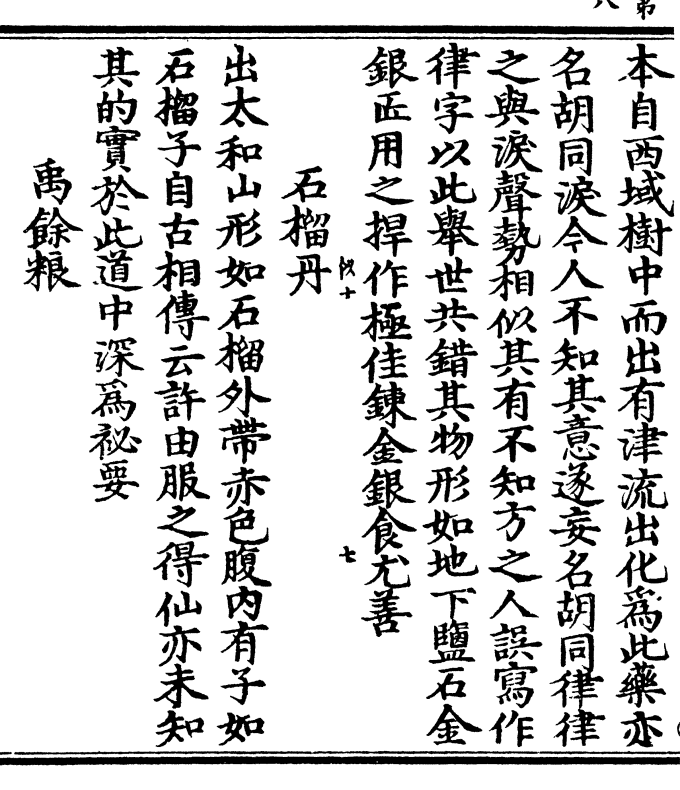 本自西域樹中而出有津流出化爲此藥亦
名胡同淚今人不知其意遂妄名胡同律律
之與淚聲勢相似其有不知方之人誤寫作
律字以此舉世共錯其物形如地下鹽石金
銀匠用之捍作極佳鍊金銀食尤善
石榴丹
出太和山形如石榴外帶赤色腹内有子如
石榴子自古相傳云許由服之得仙亦未知
其的實於此道中深爲祕要
禹餘粮
七